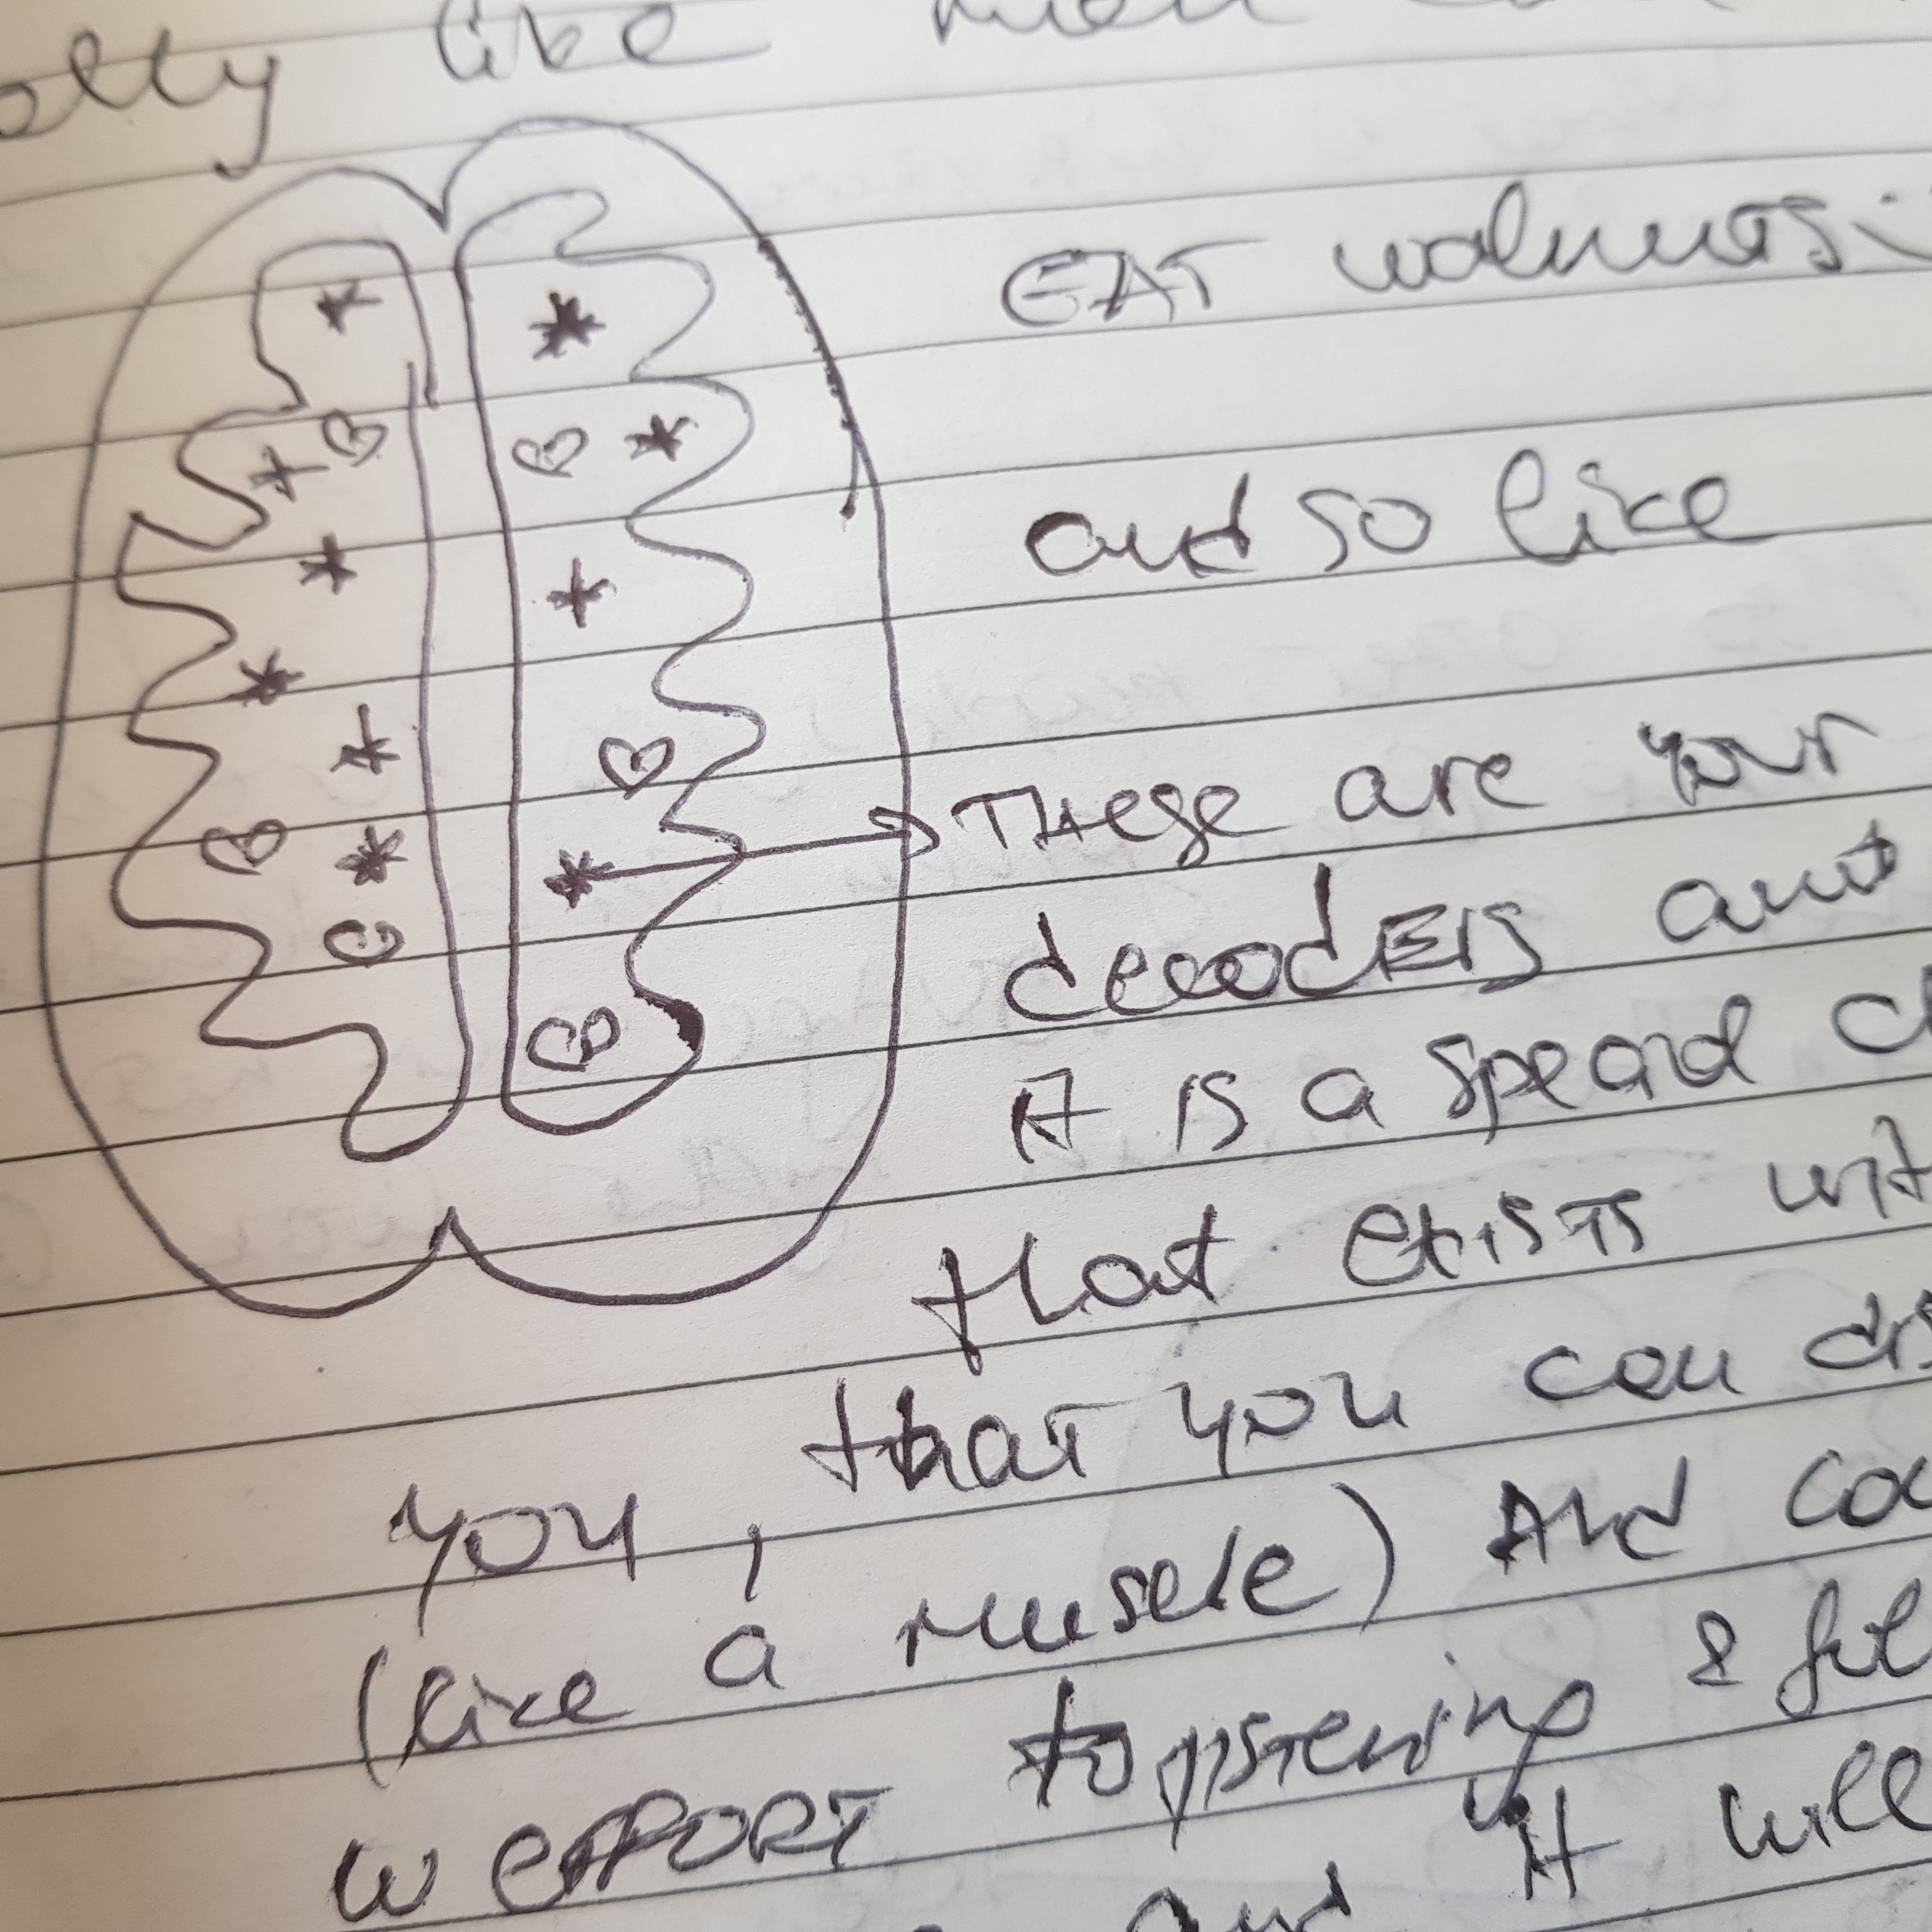 like
EAT walnuts:
and so like
These are your
decodERS and
it IS a speard
that exists
you, that you can
(like a muscle) AND
W EFFORT to listening &
and it will